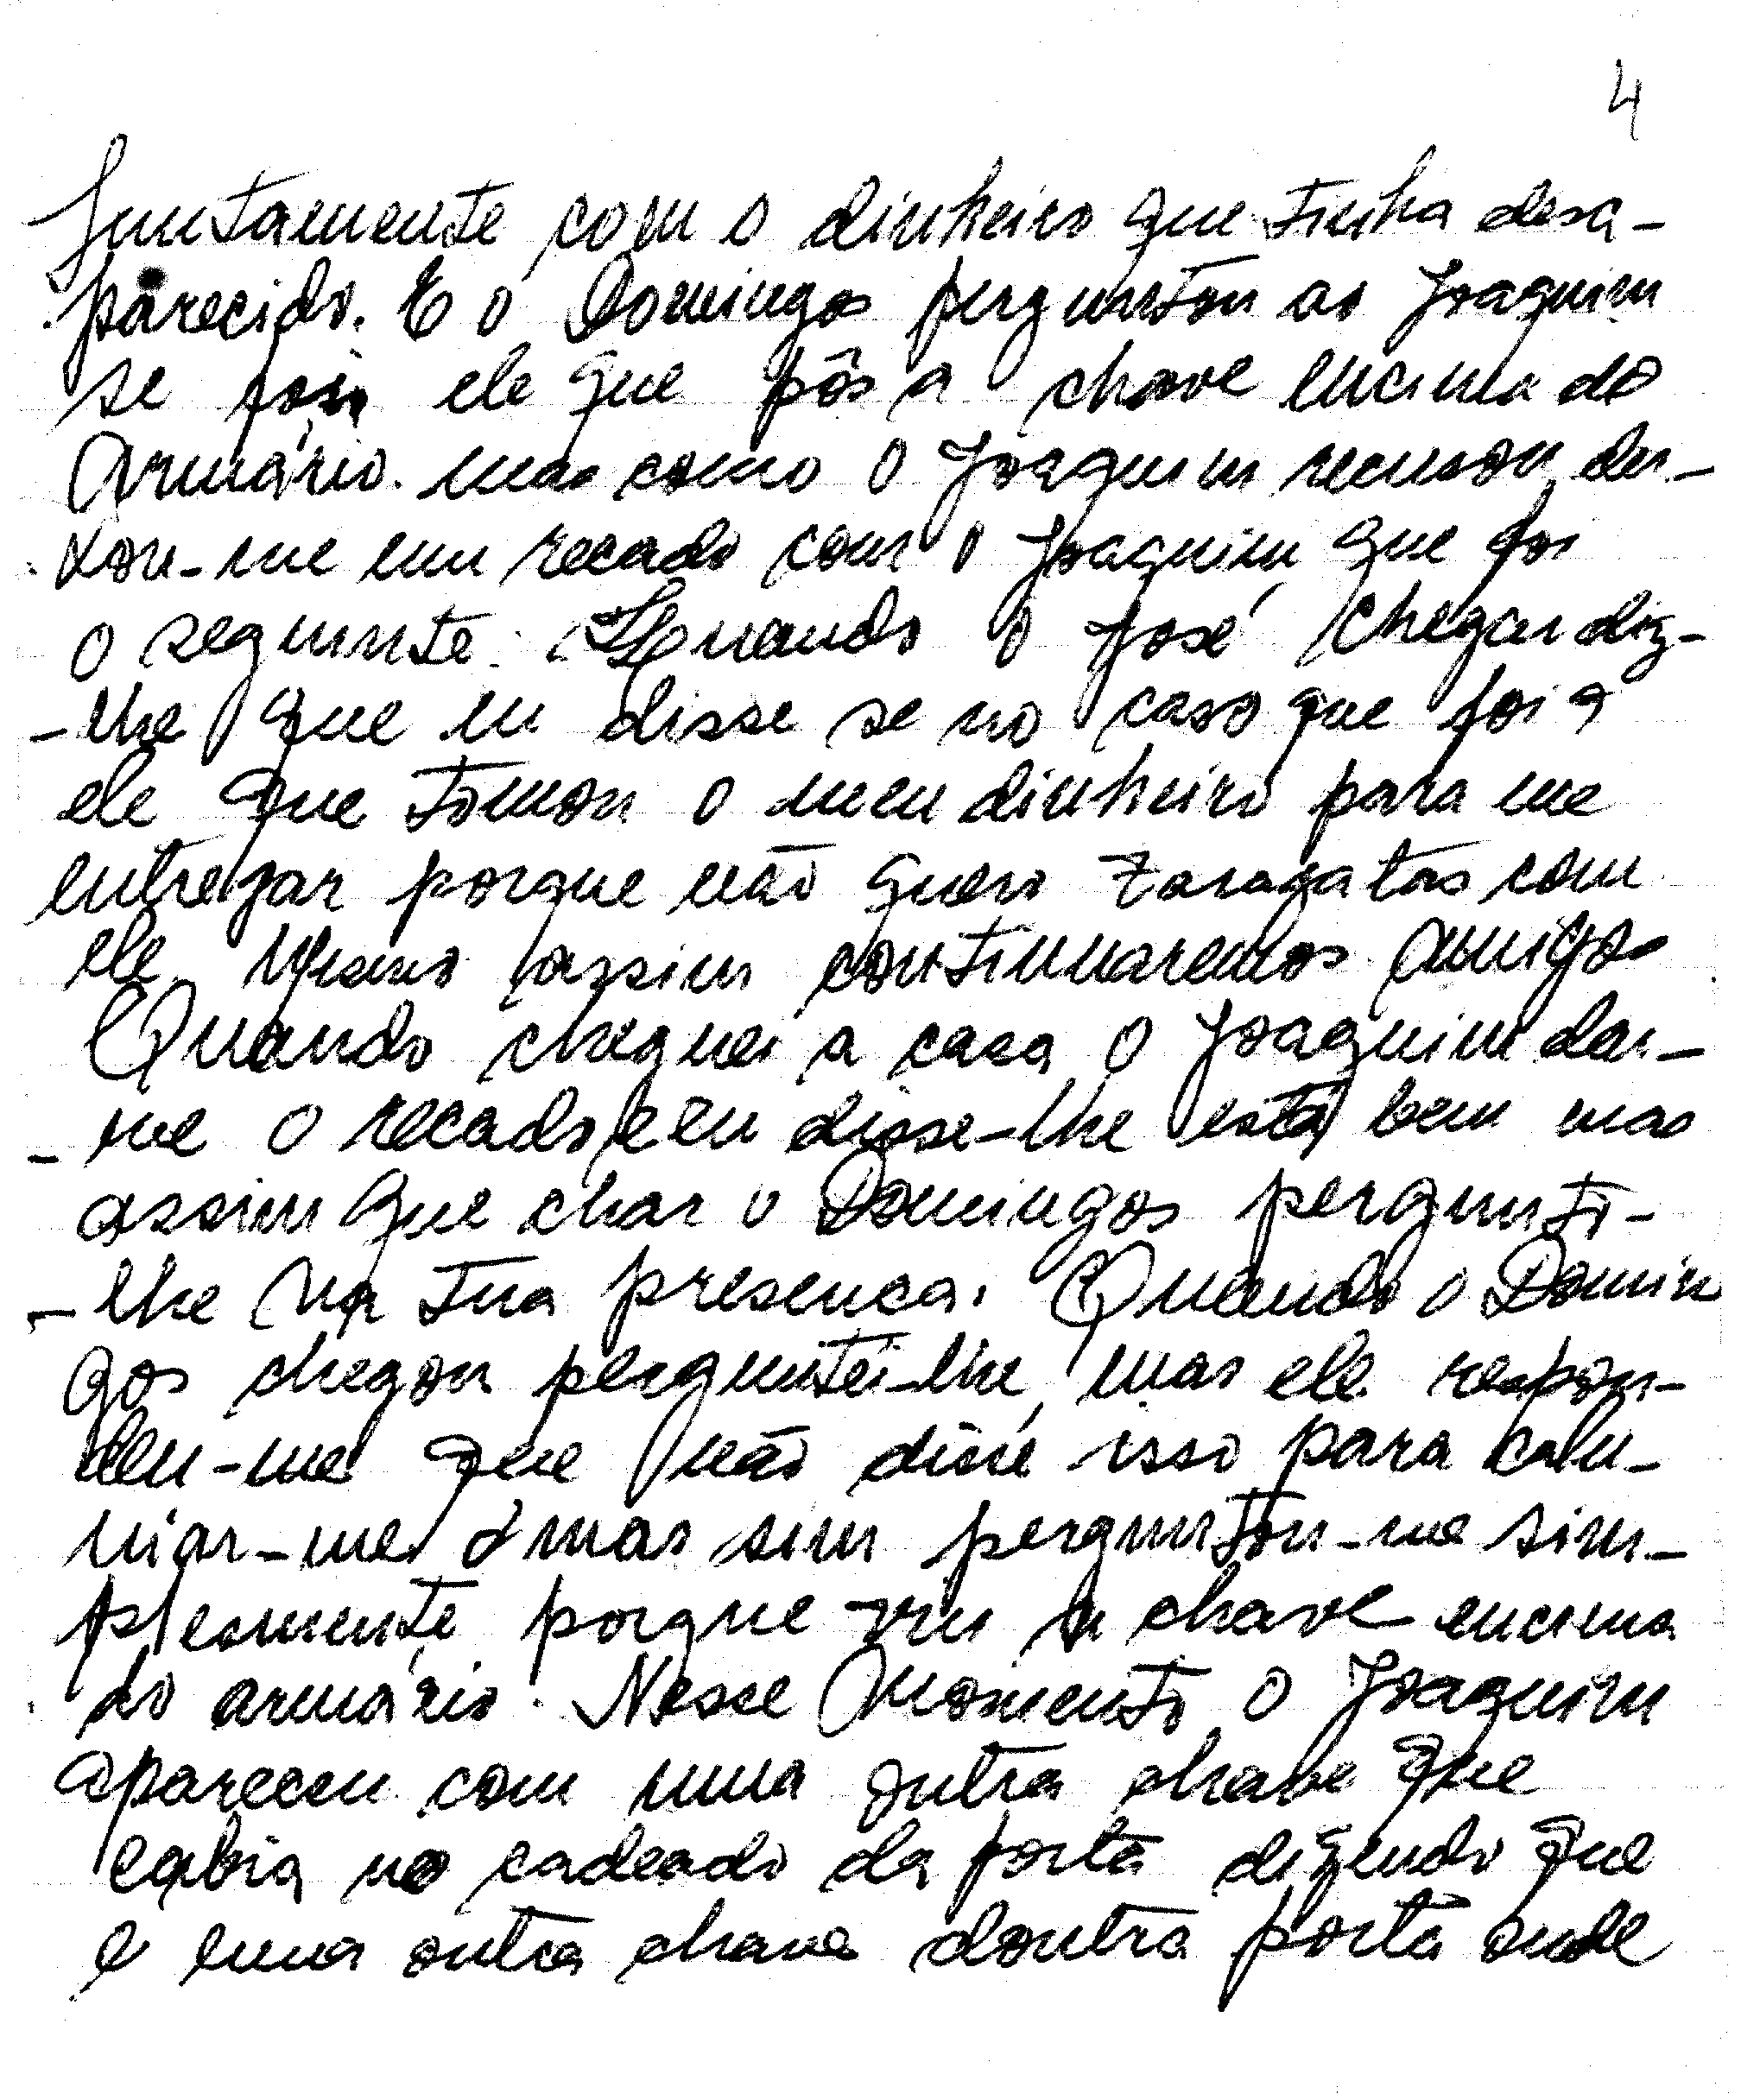 4
Juntamente com o dinheiro que tinha desa-
parecido. E o Domingos perguntou ao Joaquim
se foi ele que pôs a chave encima do
Armário. mas como o Joaquim recusou dei-
xou-me um recado com o Joaquim que foi
o seguinte: Quando o José chegar diz-
-lhe que eu disse se no caso que foi
ele que tomou o meu dinheiro para me
entregar porque não quero zaragatas com
ele. Mesmo assim continuaremos amigos
Quando cheguei a casa o Joaquim deu-
-me o recado e eu disse-lhe está bem mas
assim que char o Domingos pergunto-
-lhe na tua presenca. Quando o Domin
gos chegou perguntei-lhe, mas ele respon-
deu-me que não disse isso para calu-
niar-me mas sim perguntou-me sim-
plesmente porque viu a chave encima
do armário. Nesse Momento o Joaquim
apareceu com uma outra chave que
cabia no cadeado da porta dizendo que
é uma outra chave doutra porta onde